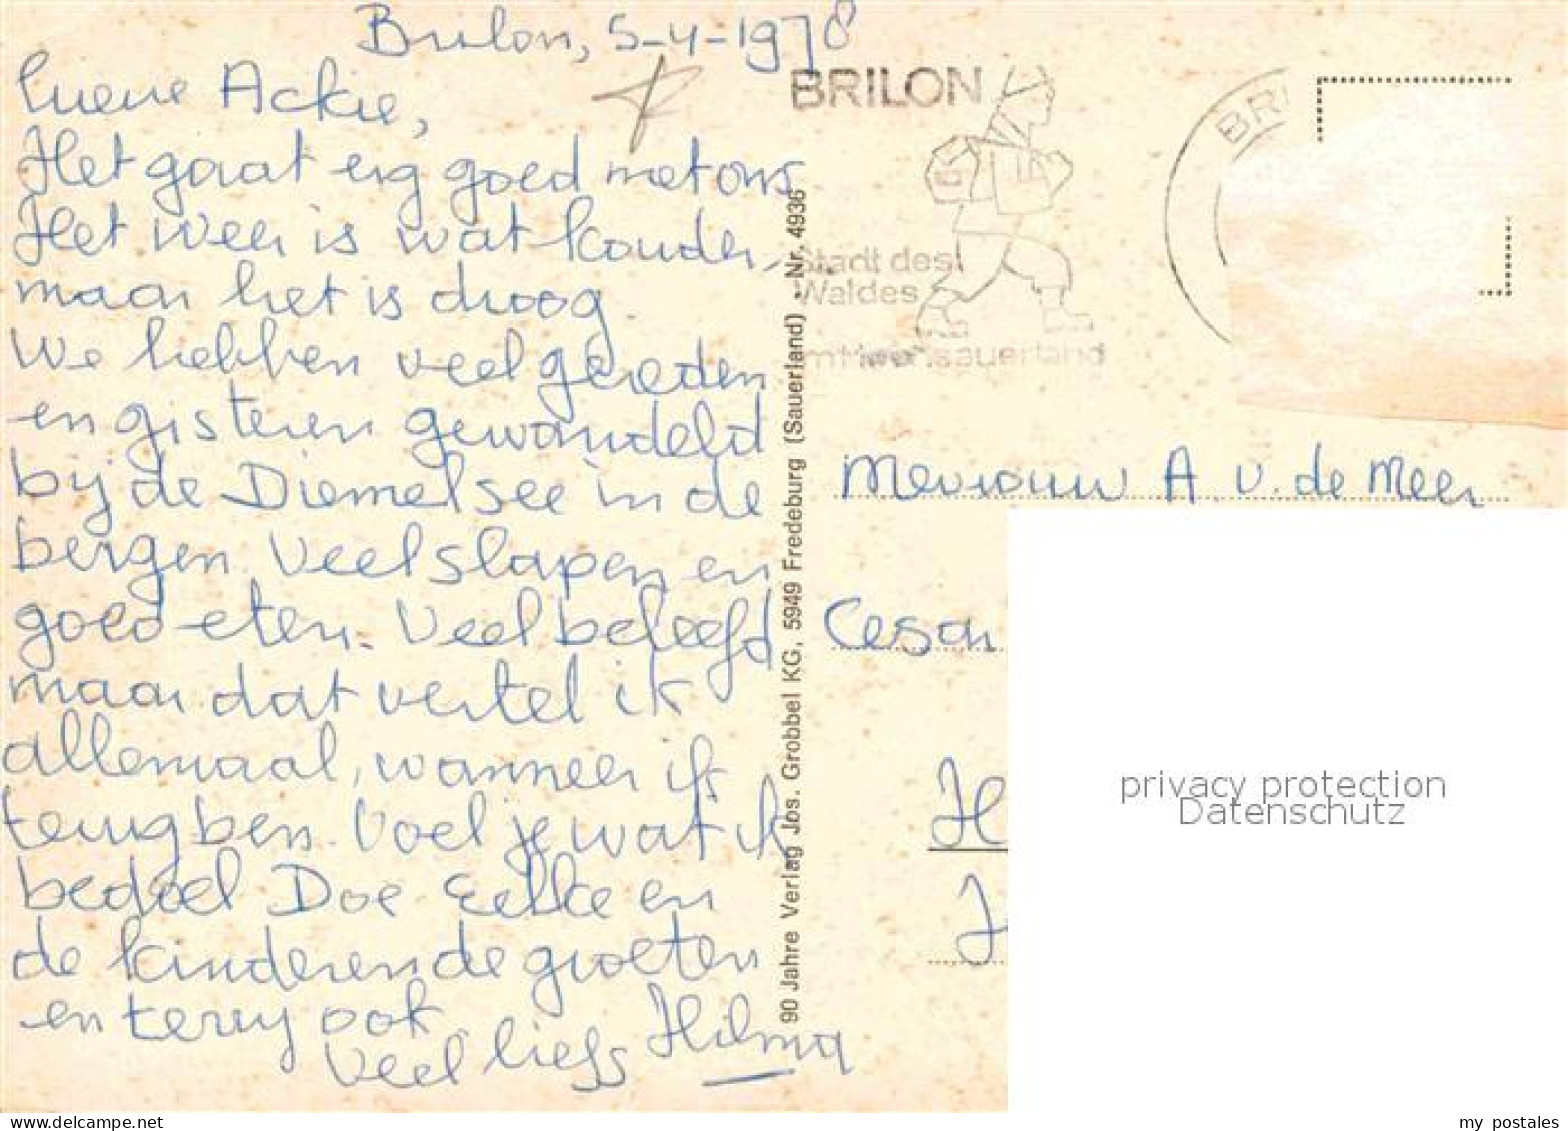 Brilon, 5-4-1978
Lieve Ackie,
Het gaat erg goed met ons
Het weer is wat kouder,
maar het is droog
We hebben veel gereden
en gisteren gewandeld
bij de Diemelsee in de
bergen Veel slapen en
goed eten. Veel beleefd
maar dat vertel ik
allemaal, wanneer ik
terug ben. Voel je wat ik
bedoel Doe Eelke en
de kinderen de groeten
en terug ook
veel liefs Hilma
90 Jahre Verlag Jos. Grobbel KG, 5949 Fredeburg (Sauerland) - Nr. 4936
BRILON
Stadt des
Waldes
im Hochsauerland
BRI
Mevrouw A v. de Meer
Cesar
H
privacy protection
Datenschutz
my postales